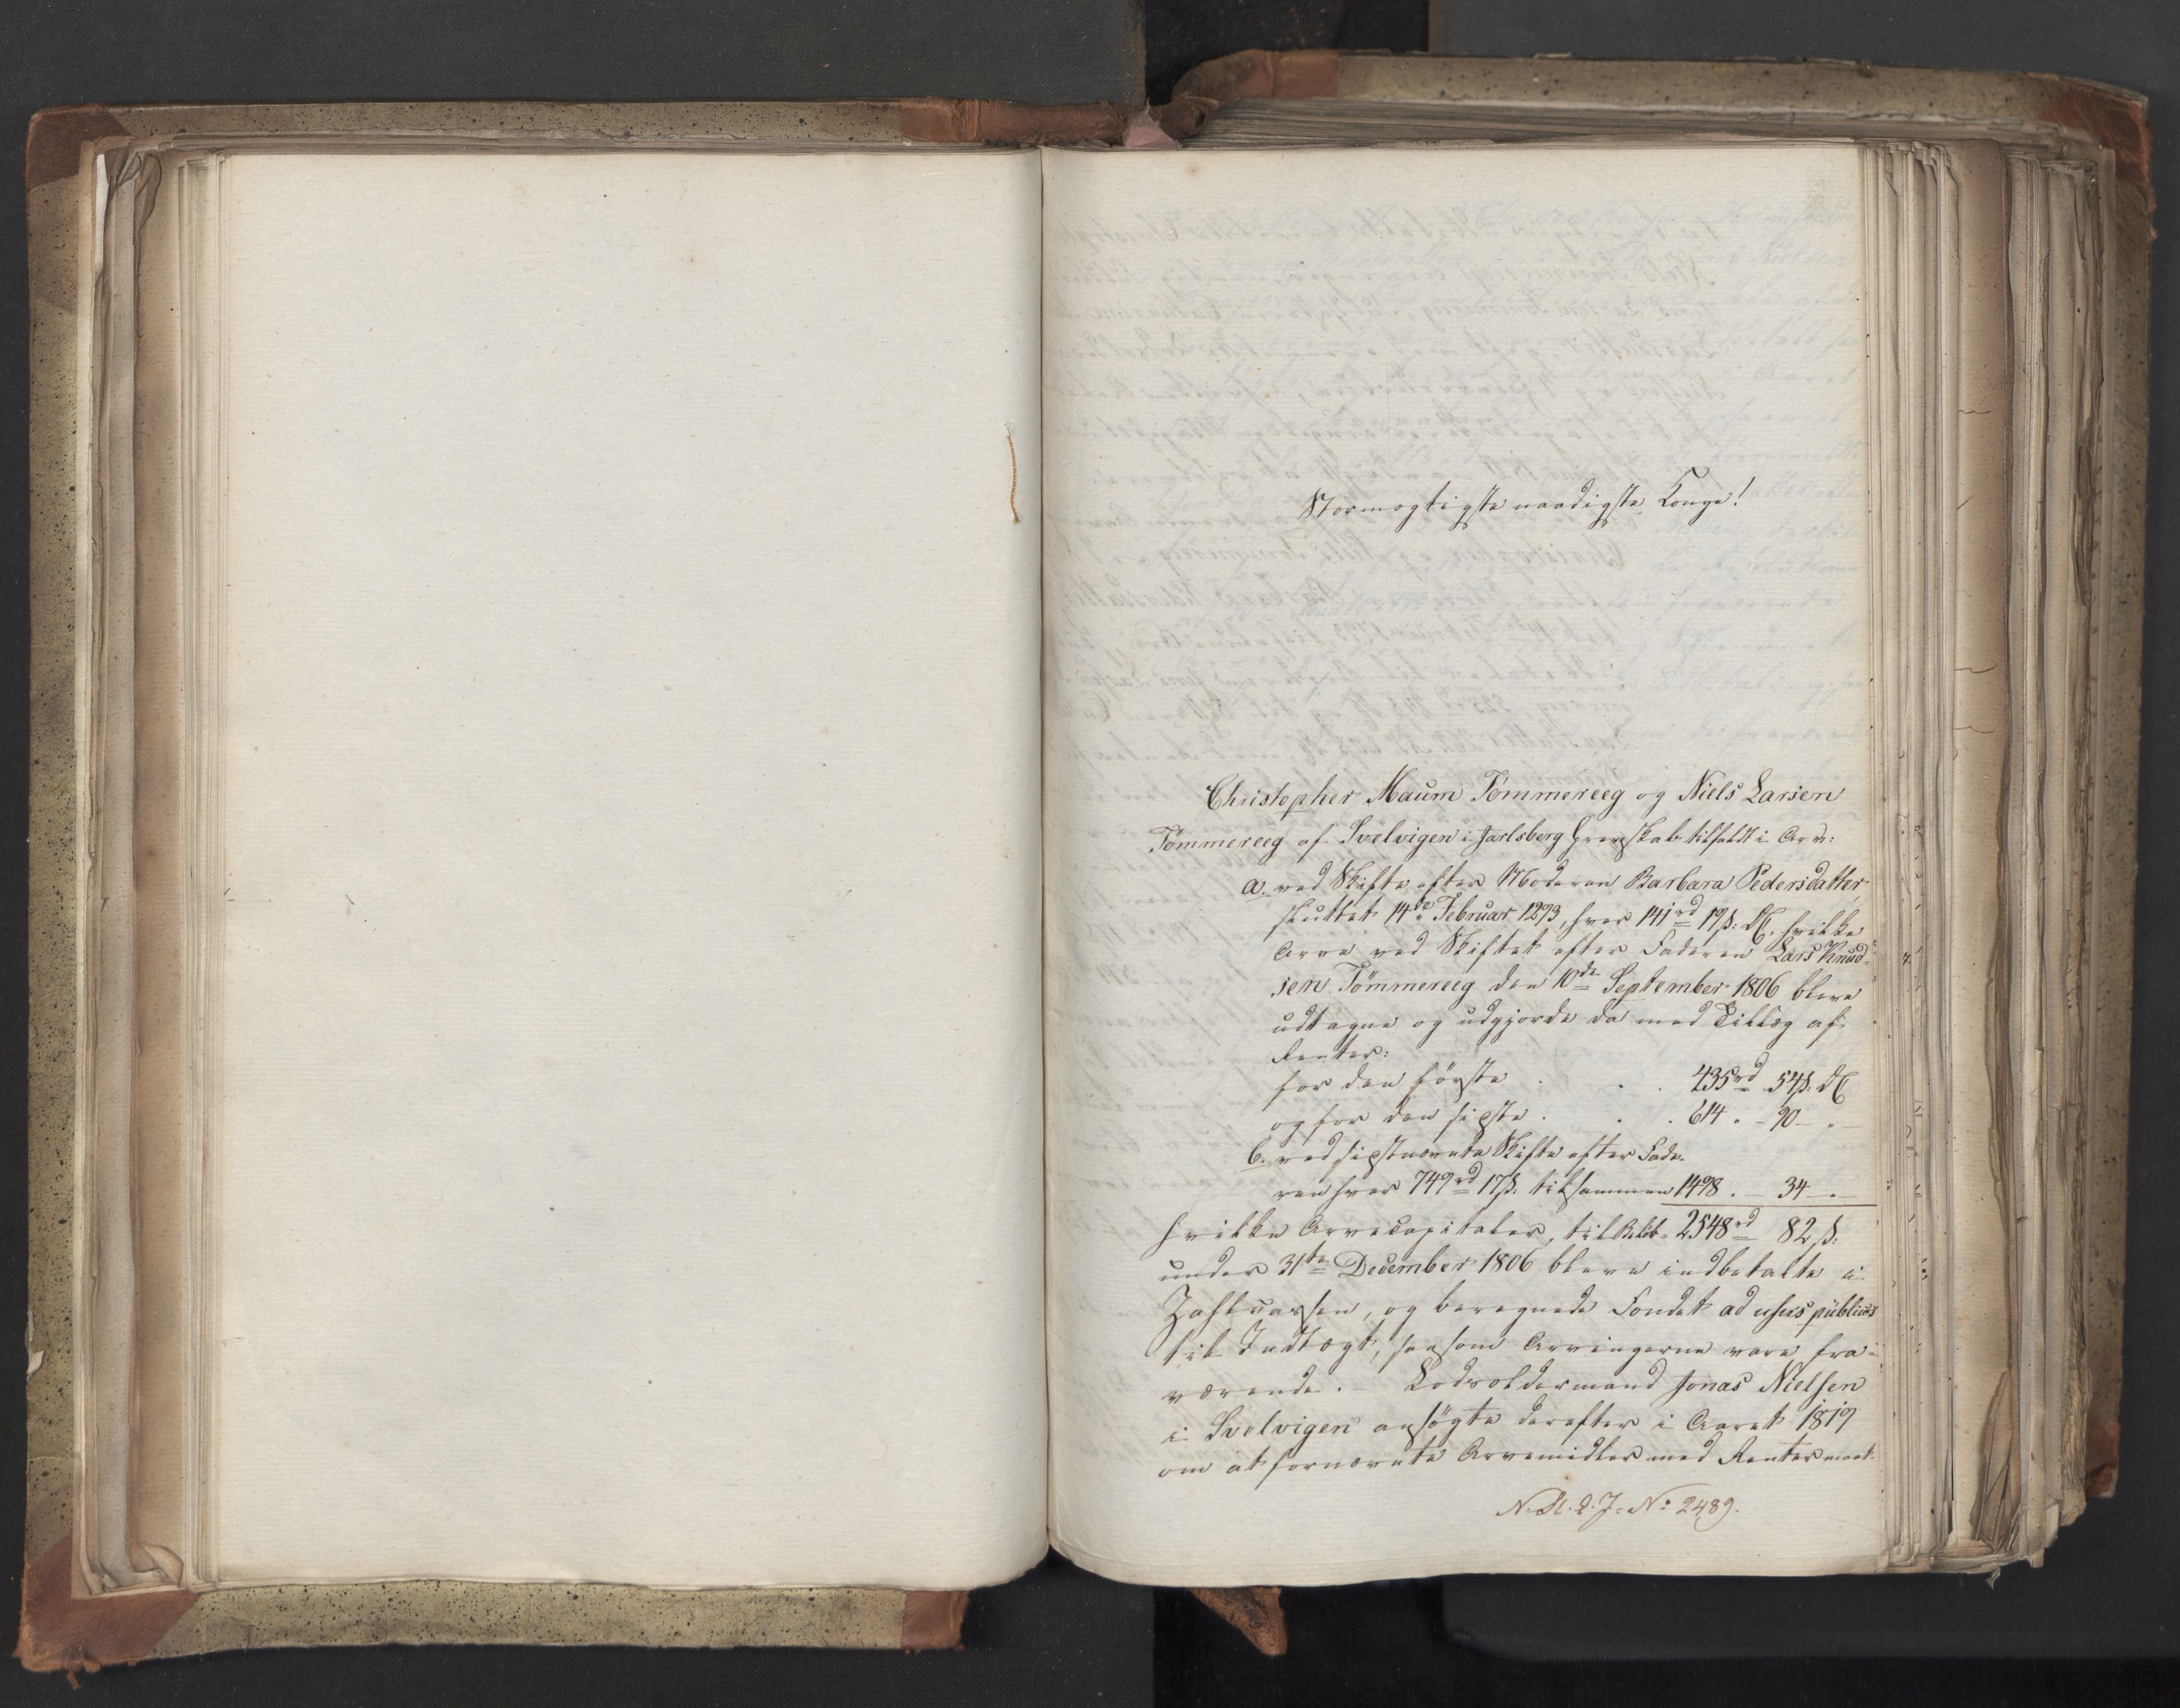 Stormægtigste naadigste Konge!
Christopher Maum Tømmereeg og Niels Larsen
Tømmereeg af Svelvigen i Jarlsberg Grevskab tilfaldt i Arv:
a. ved Skifte efter Moderen Barbara Pedersdatter
sluttet 14de Februar 1793, hver 141rd 19s: DC. hvilke
Arve ved Skiftet efter Faderen Lars Knud-
sen Tømmereeg den 10de September 1806 bleve
udtagne og udgjorde da med Tillæg af
Renter:
for den første . . . 435rd 54s: DC
og for den sidste . . . 614 " - 90 - "
b. ved sidstnævnte Skifte efter Fade-
ren hver 749rd 17s. tilsammen 1498. - 34 - "
hvilke Arvecapitaler, til Beløb 2548rd 82s:
under 31te December 1806 bleve indbetalte i
Zahlcassen, og beregnede Fondet ad usus publicos
til Indtægt, saasom Arvingerne vare fra-
værende. - Lodsoldermand Jonas Nielsen
i Svelvigen ansøgte derefter i Aaret 1819
om at fornævnte Arvemidler med Renter maat-
No 2489.